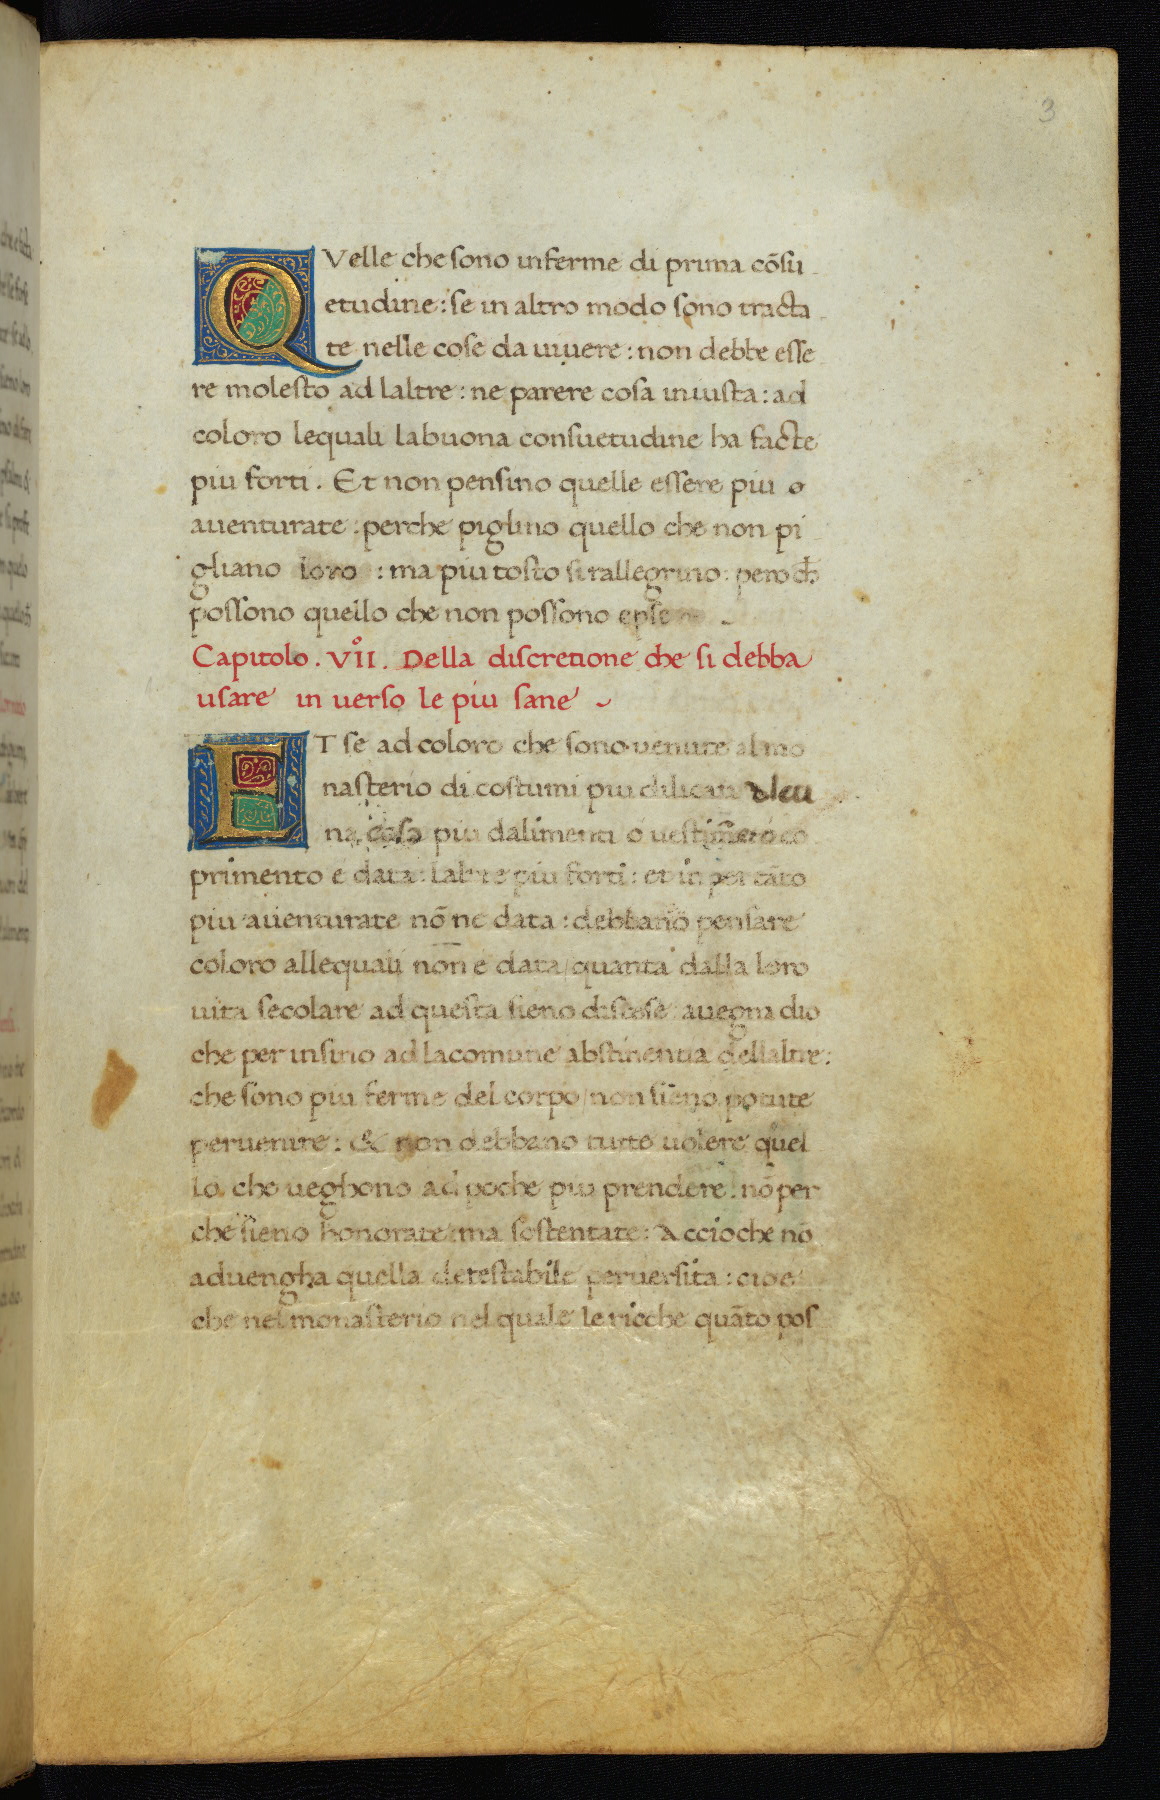 3
QVelle che sono inferme di prima cõsu
etudine: se in altro modo sono tracta
te nelle cose da uiuere: non debbe esse
re molesto ad laltre: ne parere cosa iniusta: ad
coloro lequali labuona consuetudine ha facte
piu forti. Et non pensino quelle essere piu o
auenturate: perche piglino quello che non pi
gliano loro: ma piu tosto si rallegrino: pero ch̄
possono quello che non possono epse
Capitolo. VII°. Della discretione che si debba
usare in uerso le piu sane
ET se ad coloro che sono uenute al mo
nasterio di costumi piu dilicati alcu
na cosa piu dalimenti o uestim̃eto o co
primento e data: laltre piu forti: et in per tãto
piu auenturate nõ ne data: debbano pensare
coloro allequali non e data/quanta dalla loro
uita secolare ad questa sieno discese: auegna dio
che per insino ad lacomune abstinentia dellaltre:
che sono piu ferme del corpo/non sieno potute
peruenire: & non debbano tutte uolere quel
lo che ueghono ad poche piu prendere: nõ per
che sieno honorate ma sostentate: Accioche nõ
aduengha quella detestabile peruersita: cioe
che nel monasterio nel quale le ricche quãto pos